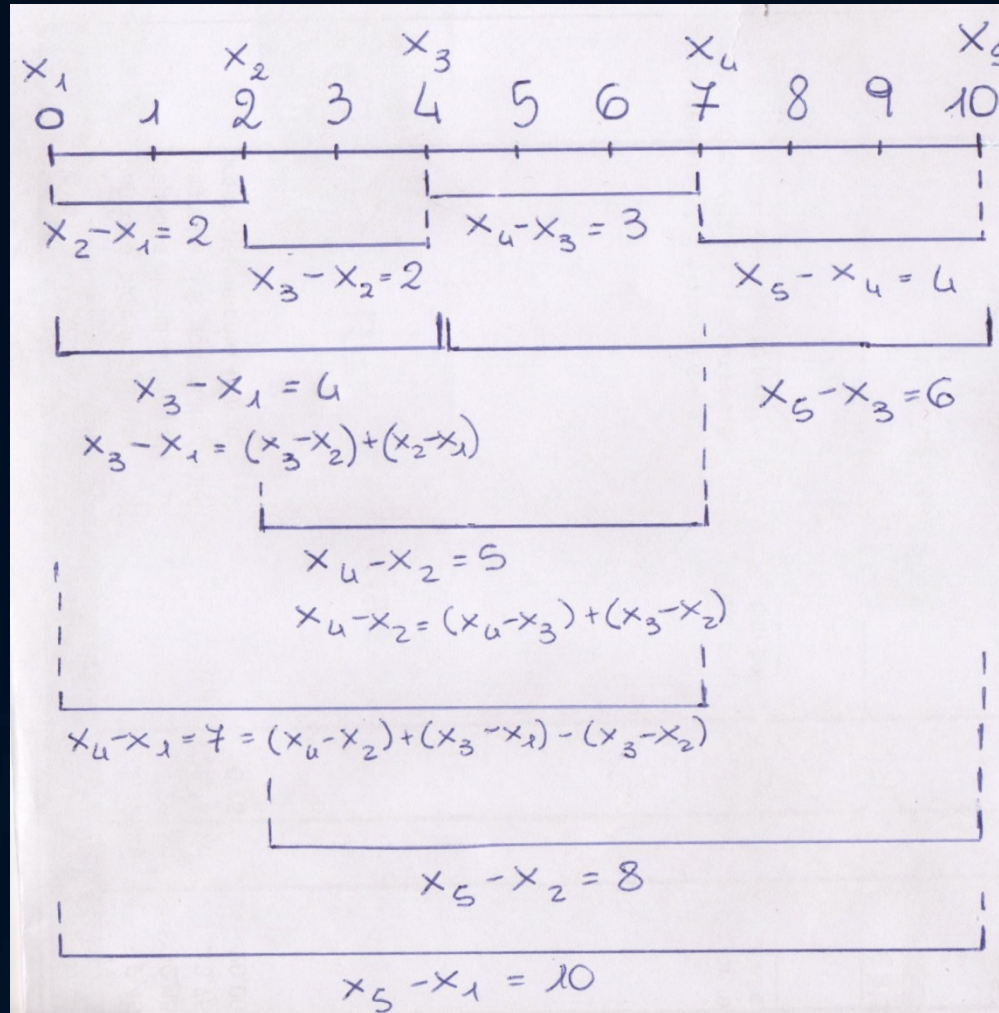 x₁ x₂ x₃ x₄ x₅
0 1 2 3 4 5 6 7 8 9 10
x₂-x₁=2 x₄-x₃=3
x₃-x₂=2 x₅-x₄=4
x₃-x₁=4 x₅-x₃=6
x₃-x₁=(x₃-x₂)+(x₂-x₁)
x₄-x₂=5
x₄-x₂=(x₄-x₃)+(x₃-x₂)
x₄-x₁=7=(x₄-x₂)+(x₃-x₁)-(x₃-x₂)
x₅-x₂=8
x₅-x₁=10